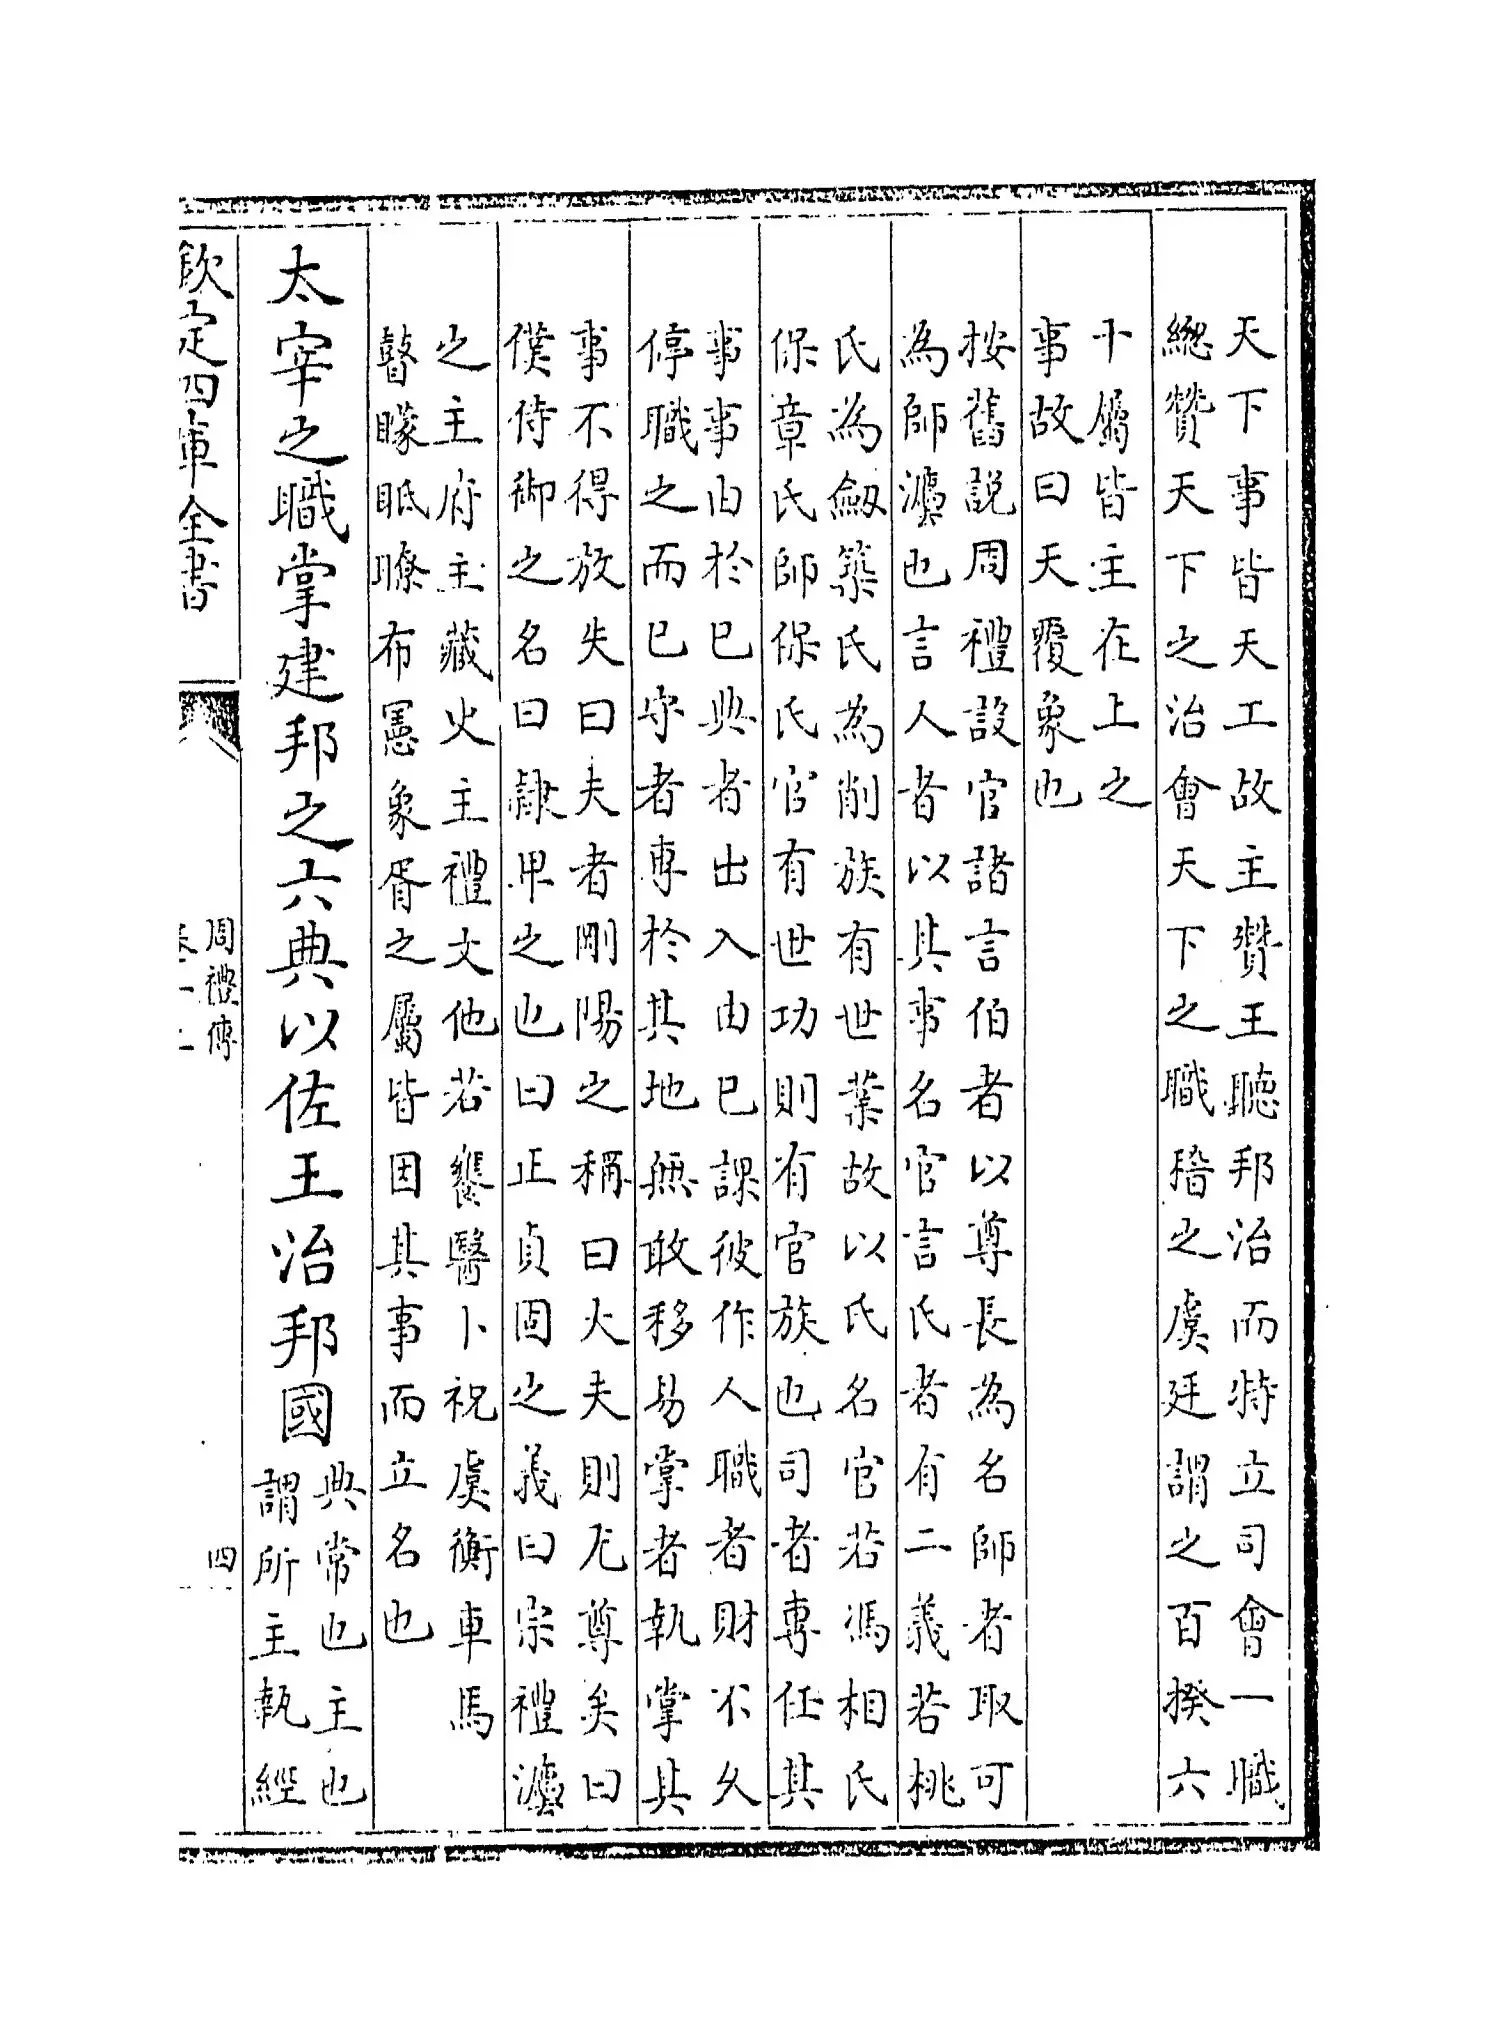 天下事皆天工故主贊王聽邦治而特立司會一職
總贊天下之治會天下之職稽之虞廷謂之百揆六
十屬皆主在上之
事故曰天覆象也
按舊說周禮設官諸言伯者以尊長為名師者取可
為師灋也言人者以其事名官言氏者有二義若桃
氏為劔築氏為削族有世業故以氏名官若馮相氏
保章氏師保氏官有世功則有官族也司者專任其
事事由於已典者出入由已課彼作人職者財不久
停職之而已守者專於其地無敢移易掌者執掌其
事不得放失曰夫者剛陽之稱曰大夫則尤尊矣曰
僕侍御之名曰隸卑之也曰正貞固之義曰宗禮灋
之主府主藏史主禮文他若饔醫卜祝虞衡車馬
瞽矇眡瞭布憲象胥之屬皆因其事而立名也
太宰之職掌建邦之六典以佐王治邦國
典常也主也
謂所主執經
欽定四庫全書
周禮傳
四